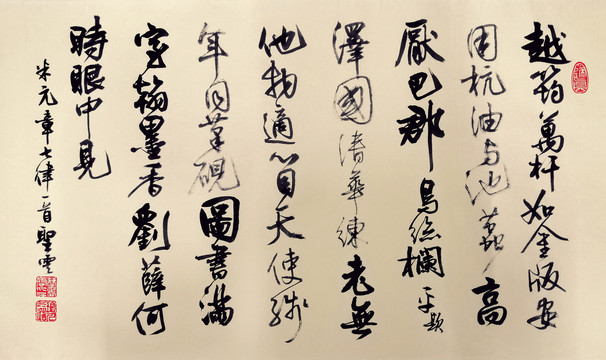 越筠萬杵如金版安
用杭油与池繭高
厭巴郡烏絲欄平欺
澤國清華練老無
他物適心目天使殘
年同筆硯圖書滿
室翰墨香劉薛何
時眼中見
米元章七律一首聖雲